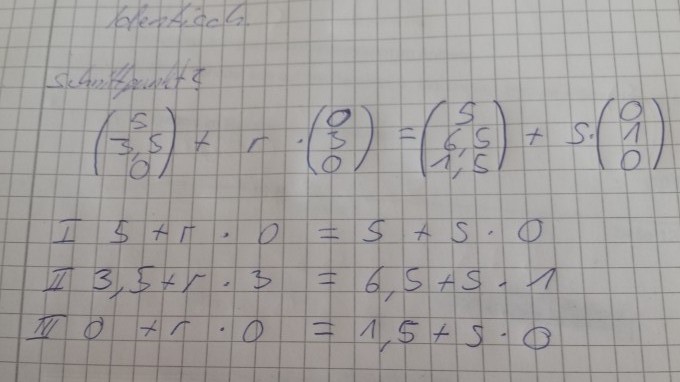 Identisch.
Schnittpunkt?
(5 3,5 0) + r · (0 3 0) = (5 6,5 1,5) + s · (0 1 0)
I 5 + r · 0 = 5 + s · 0
II 3,5 + r · 3 = 6,5 + s · 1
III 0 + r · 0 = 1,5 + s · 0